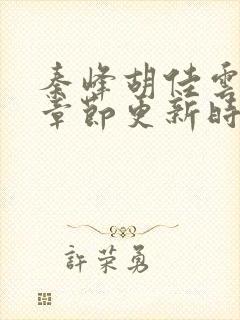 秦峰胡佳雲
章節更新時
許荣勇